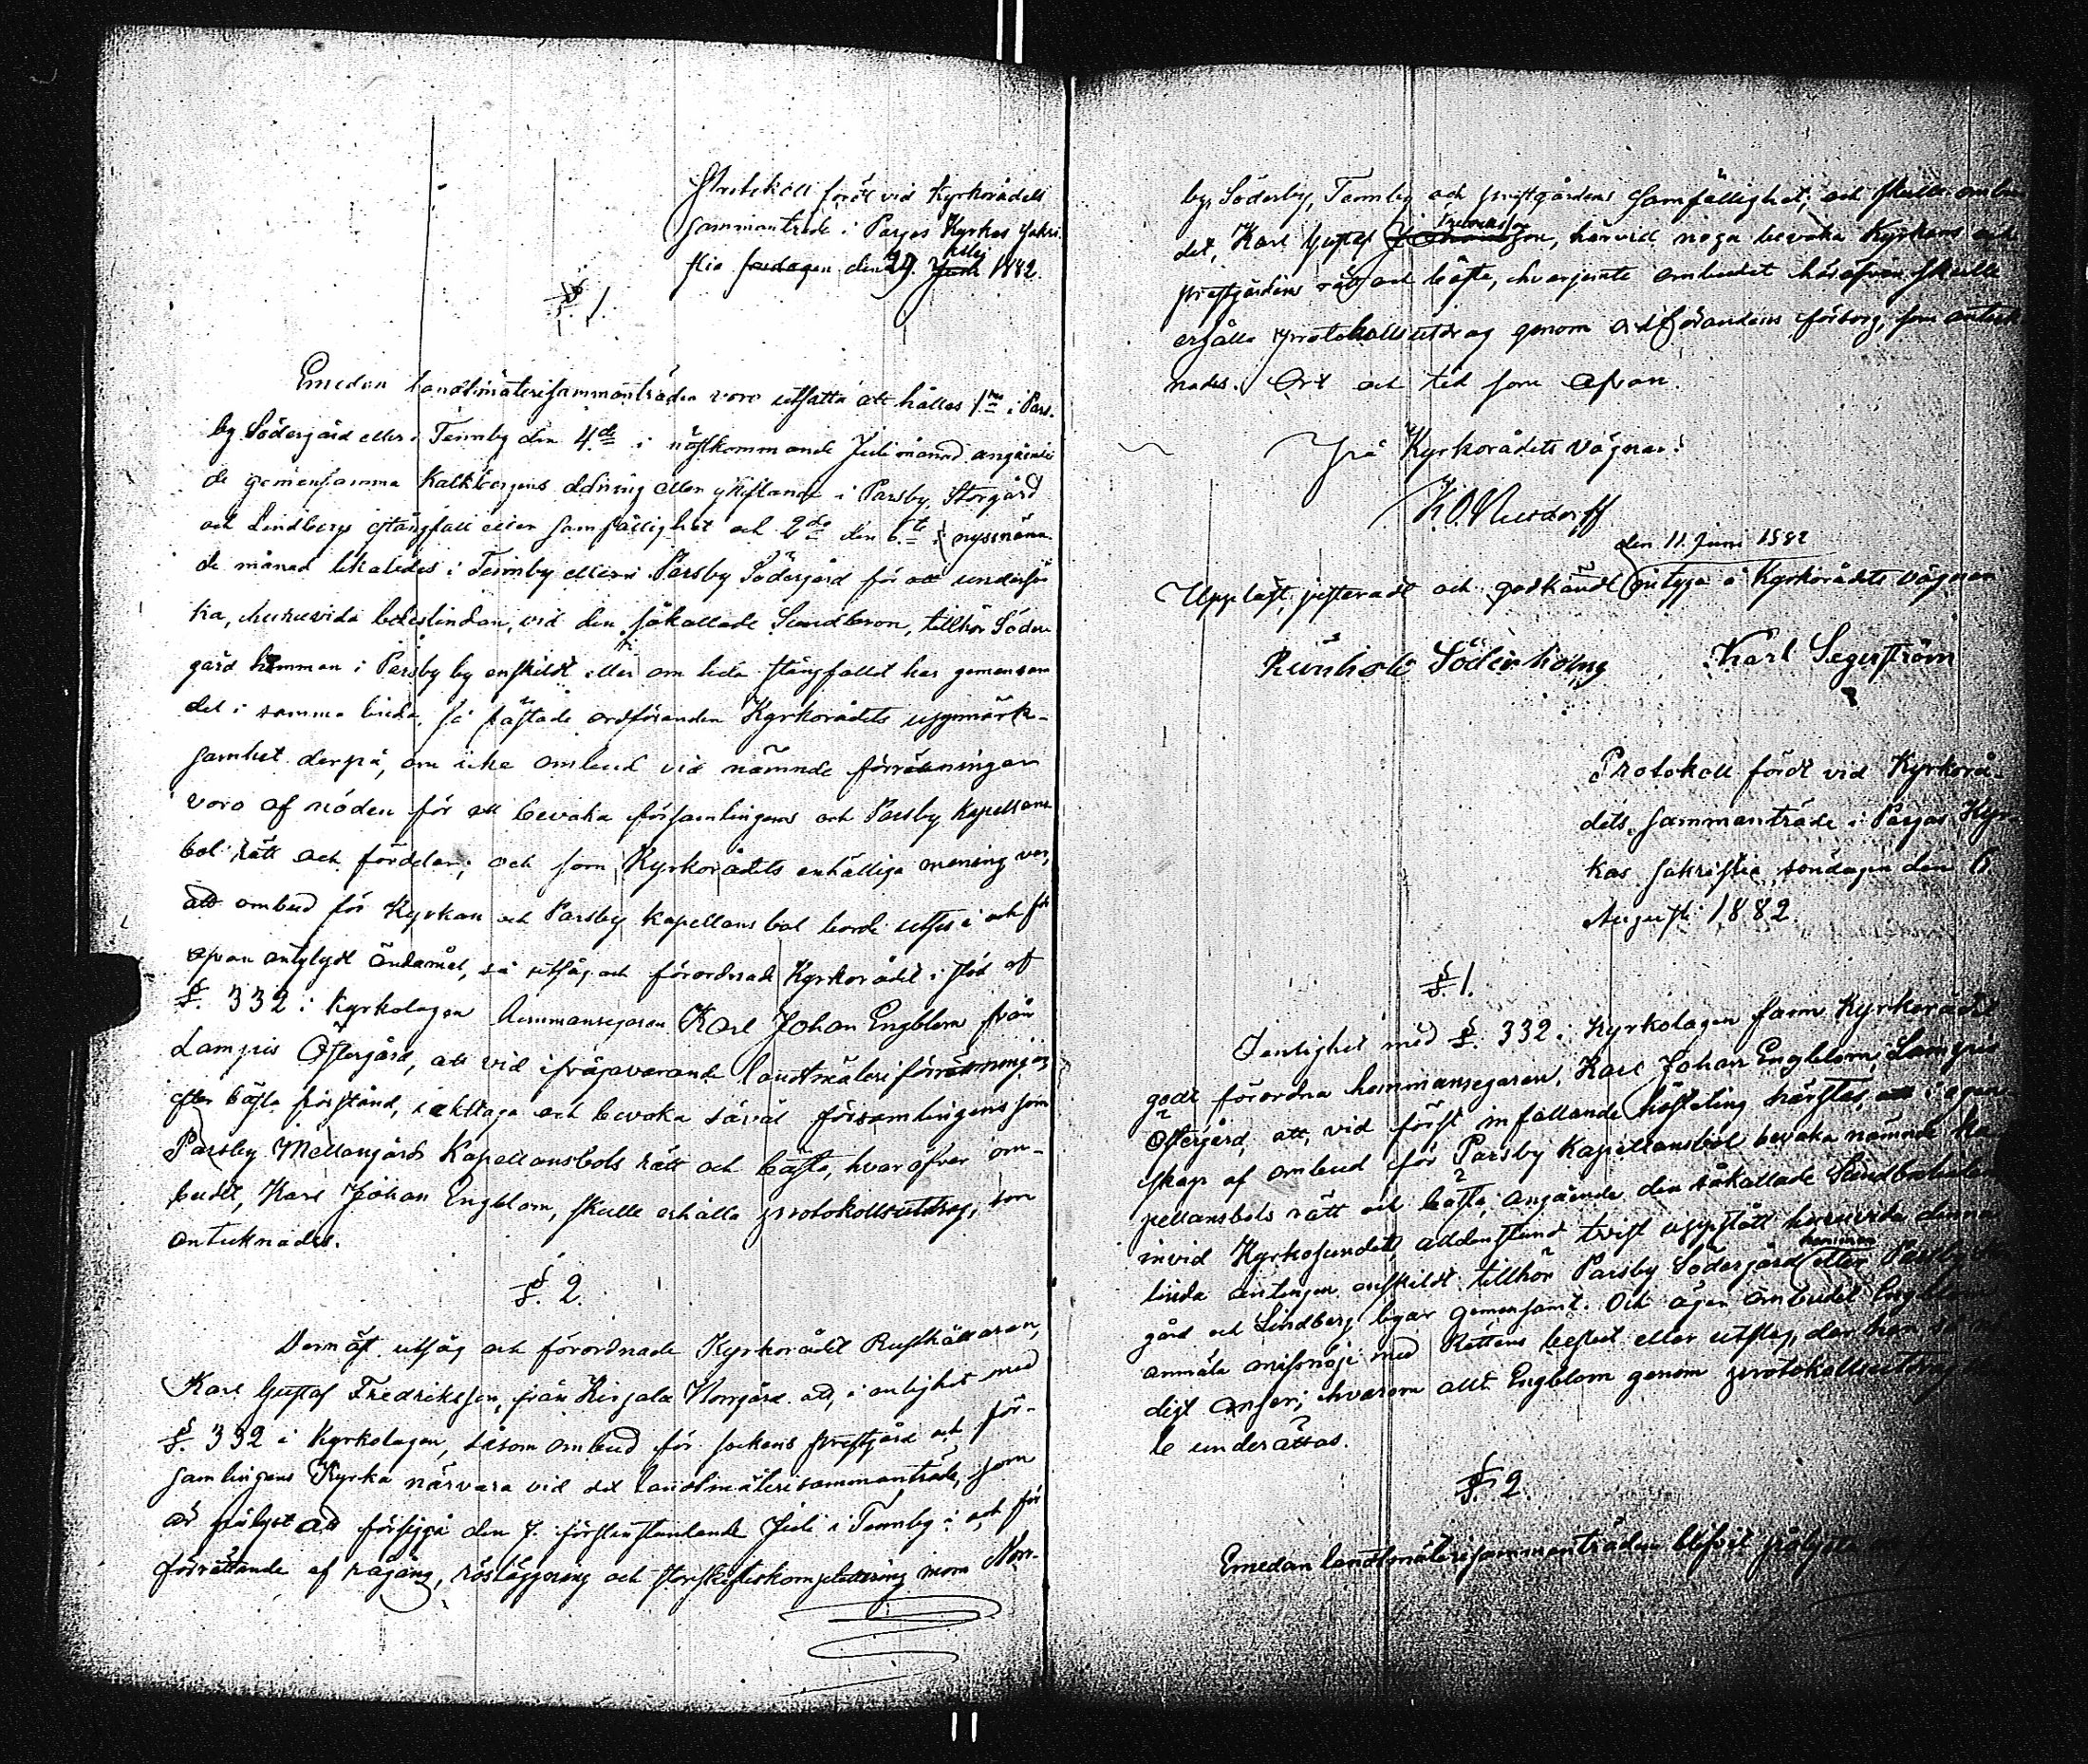 Protokoll fördt vid Kyrkorådets
sammanträde i Pargas Kyrkas sakri-
stia fredagen den 29. Maj Juni 1882.
§ 1.
Emedan landtmäterisammanträden voro utsatta att hållas 1mo i Pars-
by Södergård eller i Tennby den 4de i nästkommande Juli månad angående
de gemensamma Kalkbergens delning eller i Parsby Storgård
och Lindbergs stångfall eller samfällighet och 2do den 6te i nyssnämn-
de månad likaledes i Tennby eller i Parsby Södergård för att undersö-
ka, huruvida beteslindan, vid den såkallade Sundbron, tillhör Söder-
gård hemman i Parsby by enskildt eller om hela stångfallet har gemensam
del i samma linda, så fästade ordföranden Kyrkorådets uppmärk-
samhet derpå, om icke ombud vid nämnde förrättningar
voro af nöden för att bevaka församlingens och Parsby Kapellans-
bol rätt och fördelar; och som Kyrkorådets enhälliga mening var,
att ombud för Kyrkan och Parsby kapellansbol borde utses i och för
ofvan antydt ändamål, så utsåg och förordnade Kyrkorådet i stöd af
§. 332 i Kyrkolagen hemmansegaren Karl Johan Engblom från
Lampis Östergård, att vid ifrågavarande landtmäteriförrättningar
efter bästa förstånd, iakttaga och bevaka såväl församlingens som
Parsby Mellangårds Kapellansbols rätt och bästa, hvaröfver om-
budet, Karl Johan Engblom, skulle erhålla protokollsutdrag, som
antecknades.
§. 2.
Dernäst utsåg och förordnade Kyrkorådet Rusthållaren,
Karl Gustaf Fredriksson, från Kirjala Norrgård att, i enlighet med
§. 332 i Kyrkolagen, såsom ombud för sockens prestgård och för-
samlingens Kyrka närvara vid det landtmäterisammanträde, som
är pålyst att försiggå den 7. förstinstundande Juli i Tennby i och för
förrättande af rågång, rösläggning och storskifteskomplettering inom Norr-
by, Söderby, Tennby och prestgårdens samfällighet; och skulle ombu-
det, Karl Gustaf Fredriksson, härvid noga bevaka Kyrkans och
prestgårdens rätt och bästa, hvarjemte ombudet häröfver skulle
erhålla protokollsutdrag genom ordförandens försorg, som anteck-
nades. Ort och tid som ofvan.
På Kyrkorådets vägnar:
den 11. Juni 1882
Uppläst, justeradt och godkändt intyga å Kyrkorådets vägnar
Söderholm Karl Segerström
Protokoll fördt vid Kyrkorå-
dets sammanträde i Pargas Kyr-
kas sakristia, söndagen den 6.
Augusti 1882.
§ 1.
I enlighet med §. 332 i Kyrkolagen fann Kyrkorådet
godt förordna hemmansegaren, Karl Johan Engblom, Lampis
Östergård, att, vid först infallande hösteting härstes, i egen-
skap af ombud för Parsby Kapellansbol bevaka nämnde Ka-
pellansbols rätt och bästa, angående den såkallade Sundbrolindan
invid Kyrkosundet, alldenstund tvist uppstått huruvida denna
linda antingen enskildt tillhör Parsby Södergård hemman eller Parsby
gård och Lindberg byar gemensamt. Och äger ombudet Engblom
anmäla missnöje med Rättens beslut eller utslag, der han så
digt anser; hvarom allt Engblom genom protokollsutdrag
le underättas.
§. 2.
Emedan landtmäterisammanträden blifvit pålysta